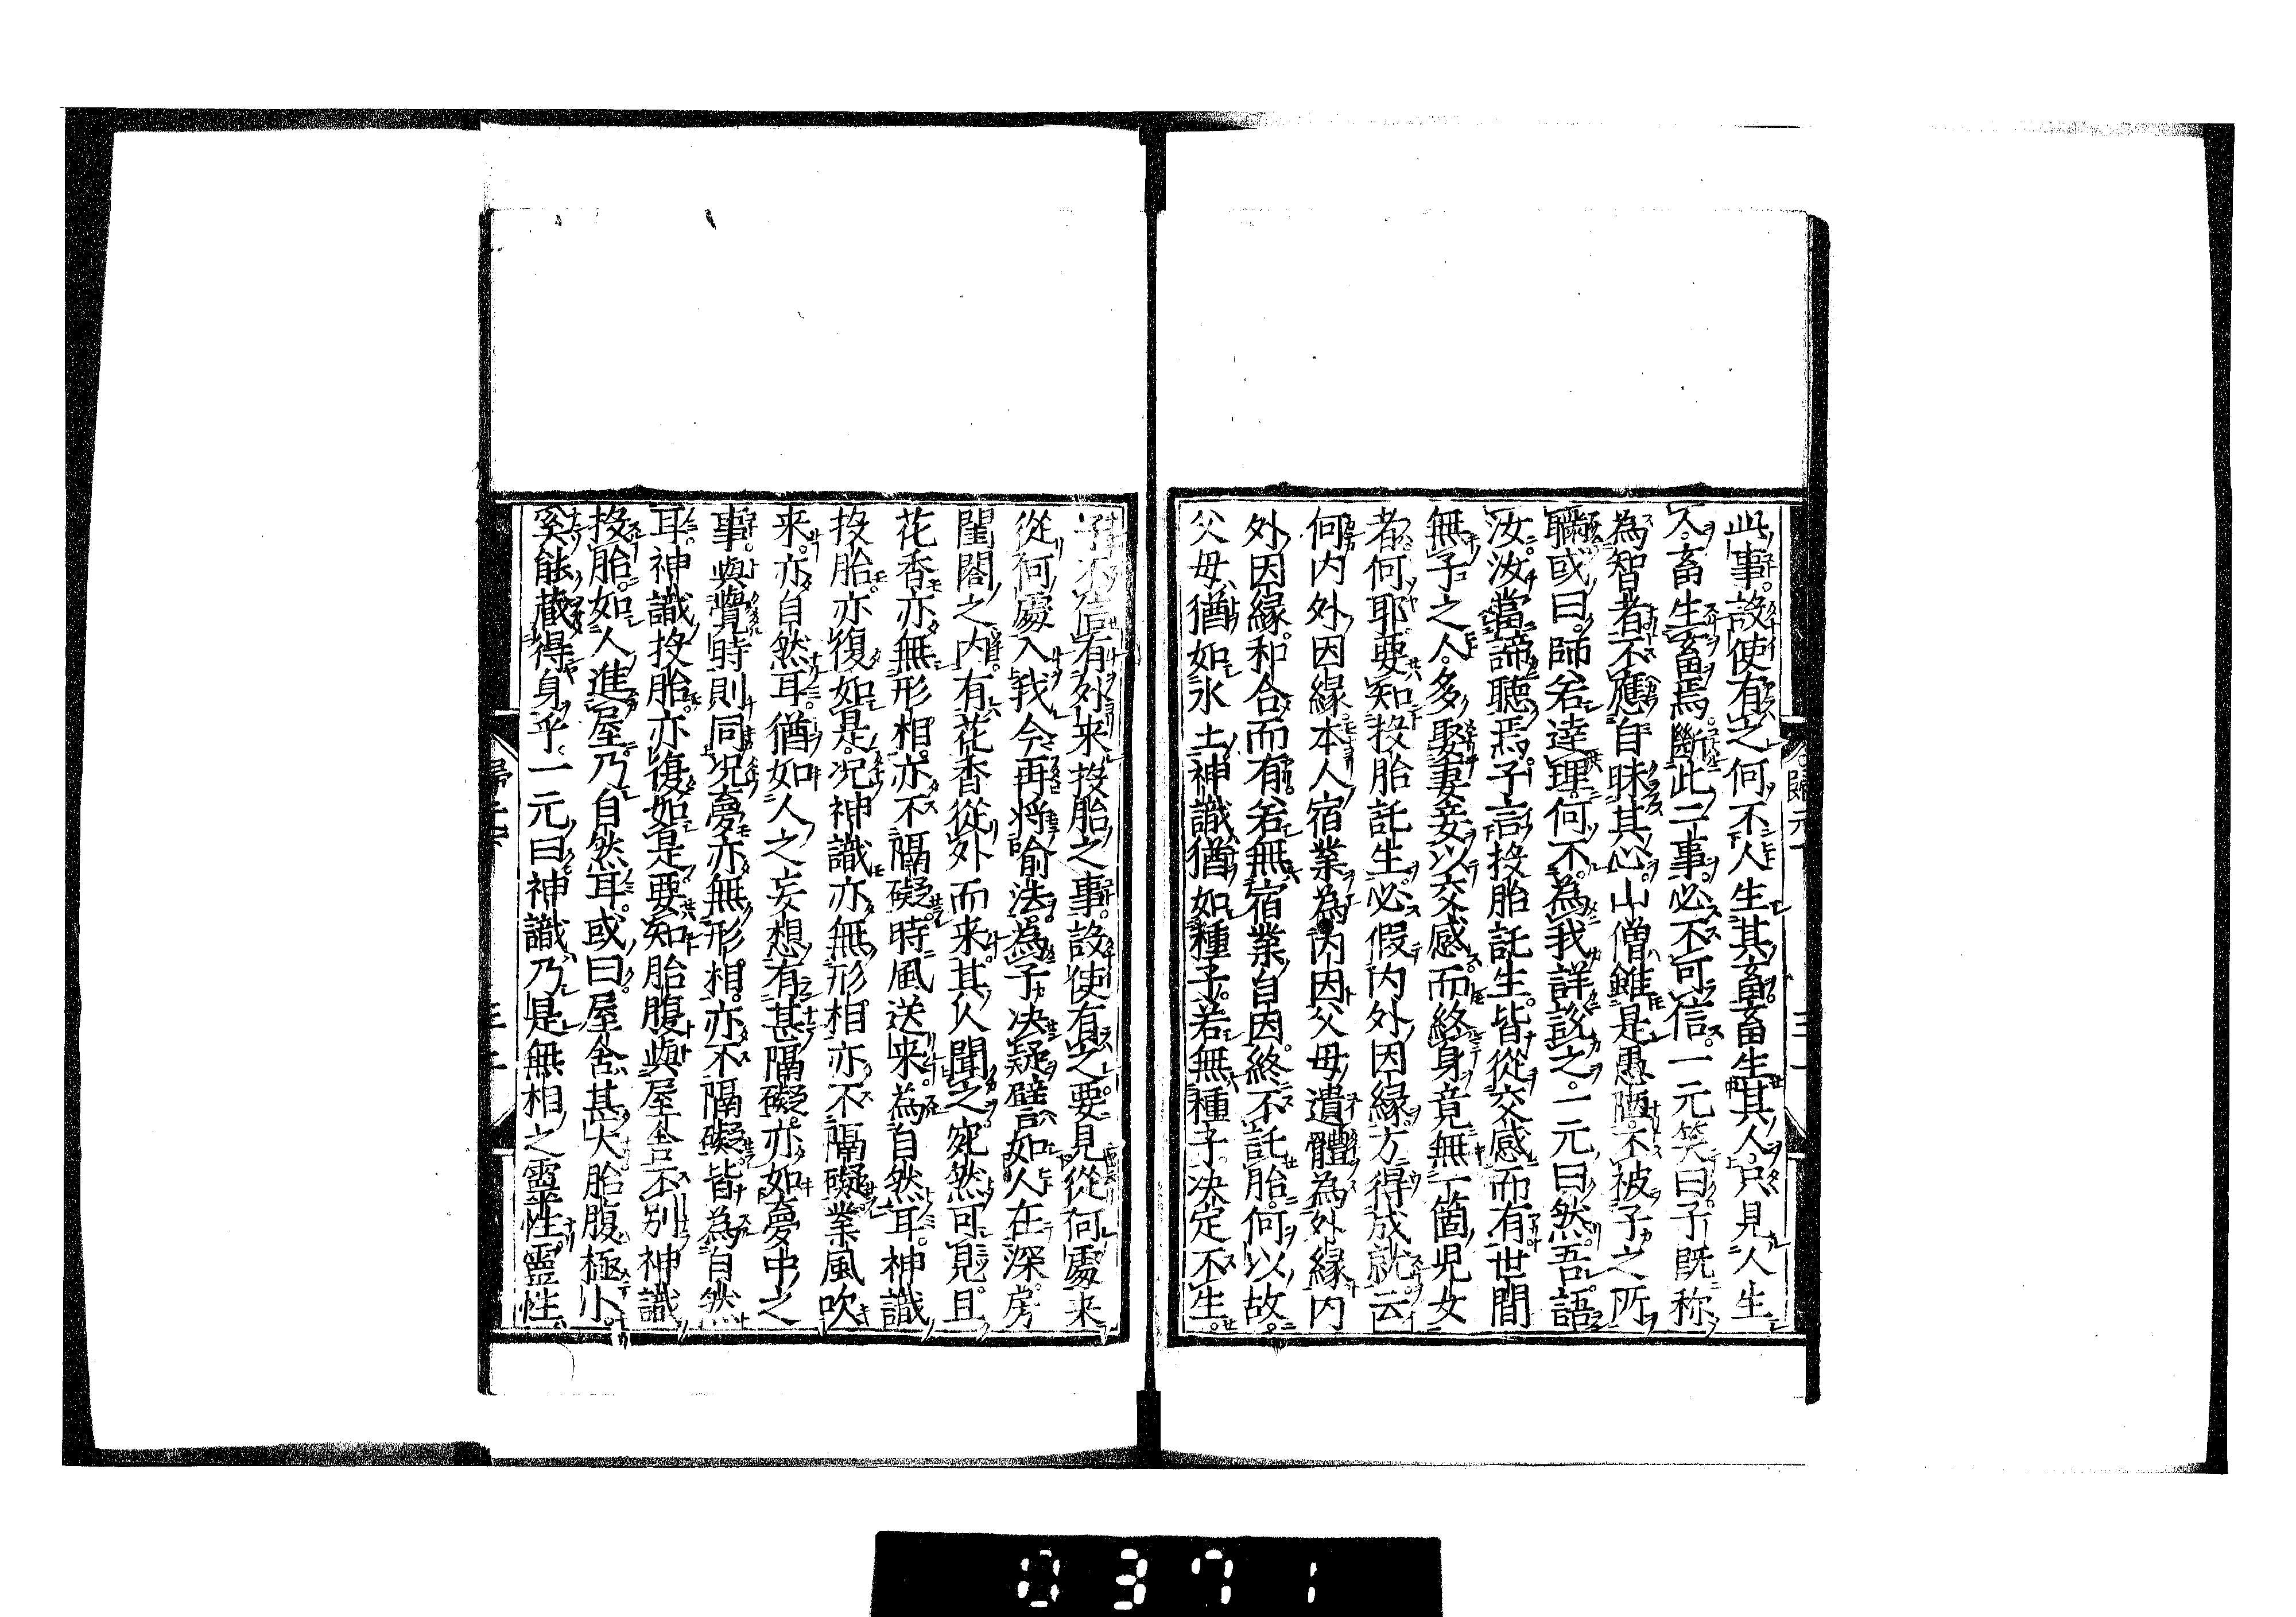 此事。設使有之何不人生其畜畜生其人。只見人生
人。畜生畜焉。斷此二事。必不可信。一元笑曰子既称
為智者不應自昧其心。山僧雖是愚陋。不被子之所
聏或曰。師若達理。何不為我詳說之。一元曰然。吾語
汝。汝當諦聽焉。子言投胎託生。皆從交感而有世間
無子之人。多娶妻妾以交感而終身竟無一箇児女
者。何耶。要知投胎託生。必假内外因緣方得成就。云
何内外因緣。本人宿業為内因父母遺體為外緣内
外因緣。和合而有。若無宿業自因。終不託胎。何以故。
父母猶如水土。神識猶如種子。若無種子。决定不生。
子不信有外来投胎之事。設使有之。要見從何處来
從何處入我今再将喻法。為子决疑。譬如人在深房
閨閤之内。有花香從外而来。其人聞之宛然可見。且
花香亦無形相。亦不隔礙。時風送来。為自然耳。神識
投胎亦復如是。况神識亦無形相亦不隔礙。業風吹
来。亦自然耳。猶如人之妄想有甚隔礙。亦如夢中之
事。與覺時則同。况夢亦無形相。亦不隔礙。皆為自然
耳。神識投胎。亦復如是。要知胎腹與屋舍不別神識
投胎。如人進屋。乃自然耳。或曰。屋舍甚大胎腹極小。
奚能藏得身乎。一元曰神識乃是無相之靈性。靈性